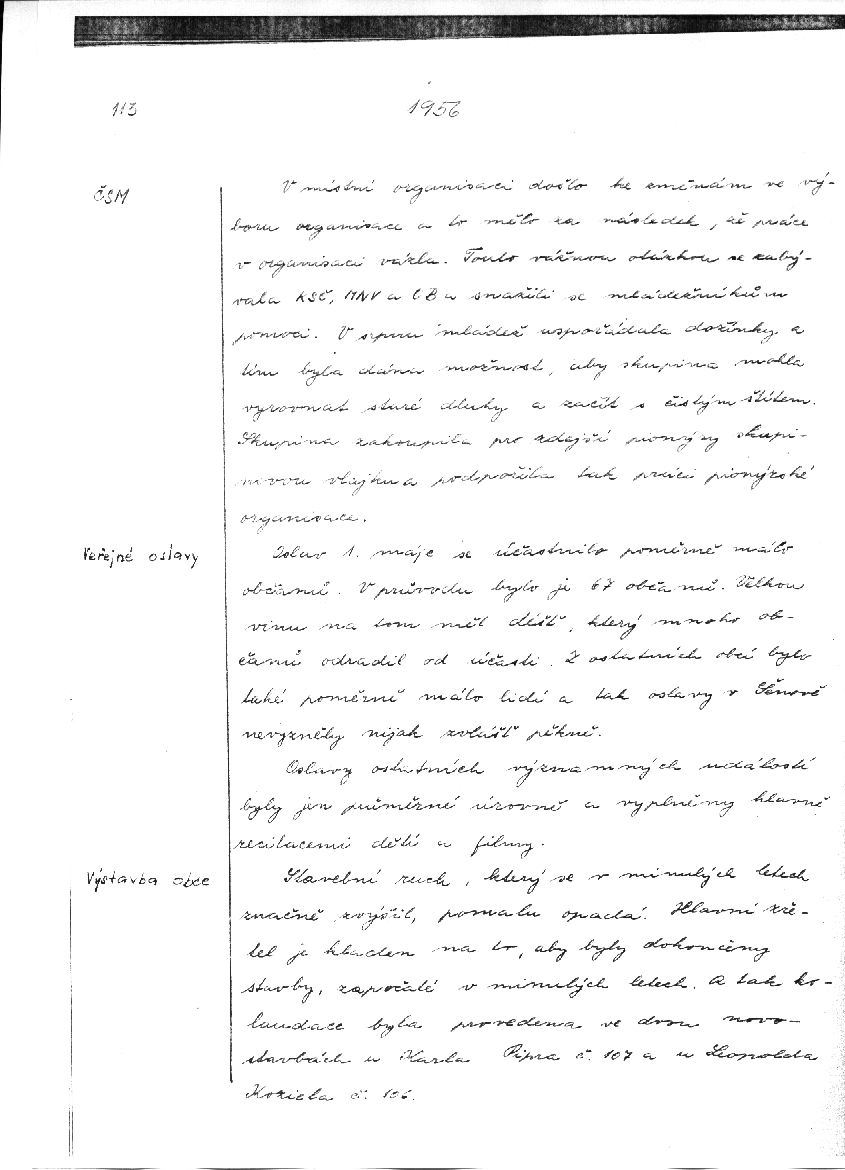 113
1956
ČSM
V místní organisaci došlo ke změnám ve vý-
boru organisace a to mělo za následek, že práce
v organisaci vázla. Touto vážnou otázkou se zabý-
vala KSČ, MNV a OB a snažili se mládežníkům
pomoci. V srpnu mládež uspořádala dožínky a
tím byla dána možnost, aby skupina mohla
vyrovnat staré dluhy a začít s čistým štítem.
Skupina zakoupila pro zdejší pionýry skupi-
novou vlajku a podpořila tak práci pionýrské
organisace.
Veřejné oslavy
Oslav 1. máje se účastnilo poměrně málo
občanů. V průvodu bylo je 67 občanů. Velkou
vinu na tom měl déšť, který mnoho ob-
čanů odradil od účasti. Z ostatních obcí bylo
také poměrně málo lidí a tak oslavy v Šenově
nevyzněly nijak zvlášť pěkně.
Oslavy ostatních významných událostí
byly jen průměrné úrovně a vyplněny hlavně
recitacemi dětí a filmy.
Výstavba obce
Stavební ruch, který se v minulých letech
značně zvýšil, pomalu opadá. Hlavní zře-
tel je kladen na to, aby byly dokončeny
stavby, započaté v minulých letech. A tak ko-
laudace byla provedena ve dvou novo-
stavbách u Karla Pipra č. 107 a u Leopolda
Koziela č. 106.